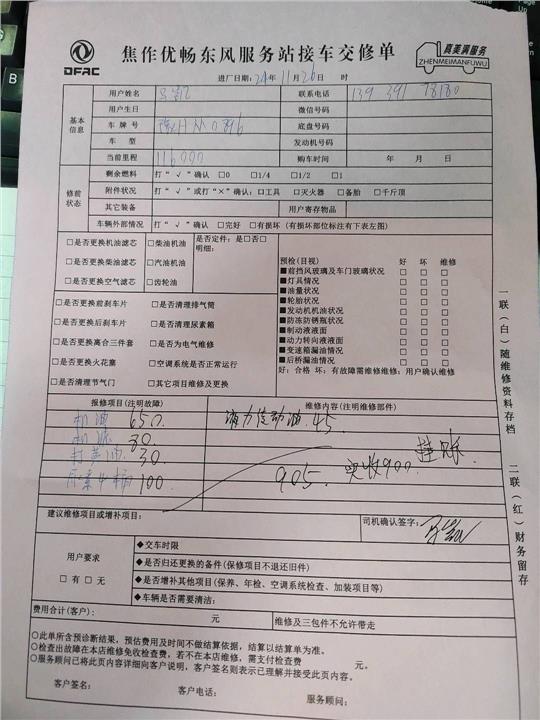 DFAC
焦作优畅东风服务站接车交修单
真美满服务
ZHENMEIMANFUWU
进厂日期：24年11月26日 时
基本信息
用户姓名
联系电话 139 391 78180
用户生日
微信号码
车牌号
底盘号码
车 型
发动机号码
当前里程 116000
购车时间 年 月 日
修前状态
剩余燃料 打“√”确认 □0 □1/4 □1/2 □1
附件状况 打“√”或打“×”确认：□工具 □灭火器 □备胎 □千斤顶
其它装备
用户寄存物品
车辆外部情况 打“√”确认 □完好 □有损坏（有损坏部位标注有下表左图）
□是否更换机油滤芯 □柴油机油
□是否更换柴油滤芯 □汽油机油
□是否更换空气滤芯 □齿轮油
是否定件：是□否□
明细：
□是否更换前刹车片 □是否清理排气筒
□是否更换后刹车片 □是否清理尿素箱
□是否更换离合三件套 □是否为电气维修
□是否更换火花塞 □空调系统是否正常运行
□是否清理节气门 □其它项目维修及更换
预检(目视) 好 坏 维修
■前挡风玻璃及车门玻璃状况 □ □ □
■灯具情况 □ □ □
■油量状况 □ □ □
■轮胎状况 □ □ □
■发动机机油状况 □ □ □
■防冻防锈瓶状况 □ □ □
■制动液液面 □ □ □
■动力转向液液面 □ □ □
■变速箱漏油情况 □ □ □
■后桥漏油情况 □ □ □
好：合格 坏：有故障需维修维修：用户确认维修
报修项目(注明故障)
维修内容(注明维修部件)
机油 650
机滤 80
打黄油 30
尿素 100
液力传动油 45
905 实收900
挂账
建议维修项目或增补项目：
司机确认签字：
用户要求
□ 有 □ 无
◆交车时限
◆是否归还更换的备件(保修项目不退还旧件)
◆是否增补其他项目(保养、年检、空调系统检查、加装项目等)
◆车辆是否需要清洁：
费用合计(客户)： 元
维修及三包件不允许带走
○此单所含预诊断结果，预估费用及时间不做结算依据，结算以结算单为准。
○检查出故障在本店维修免收检查费，若不在本店维修，需支付检查费 元。
○服务顾问已将此页内容详细向客户说明，客户签名则表示已理解并接受此页内容。
客户签名： 客户电话： 服务顾问：
一联（白）随维修资料存档
二联（红）财务留存